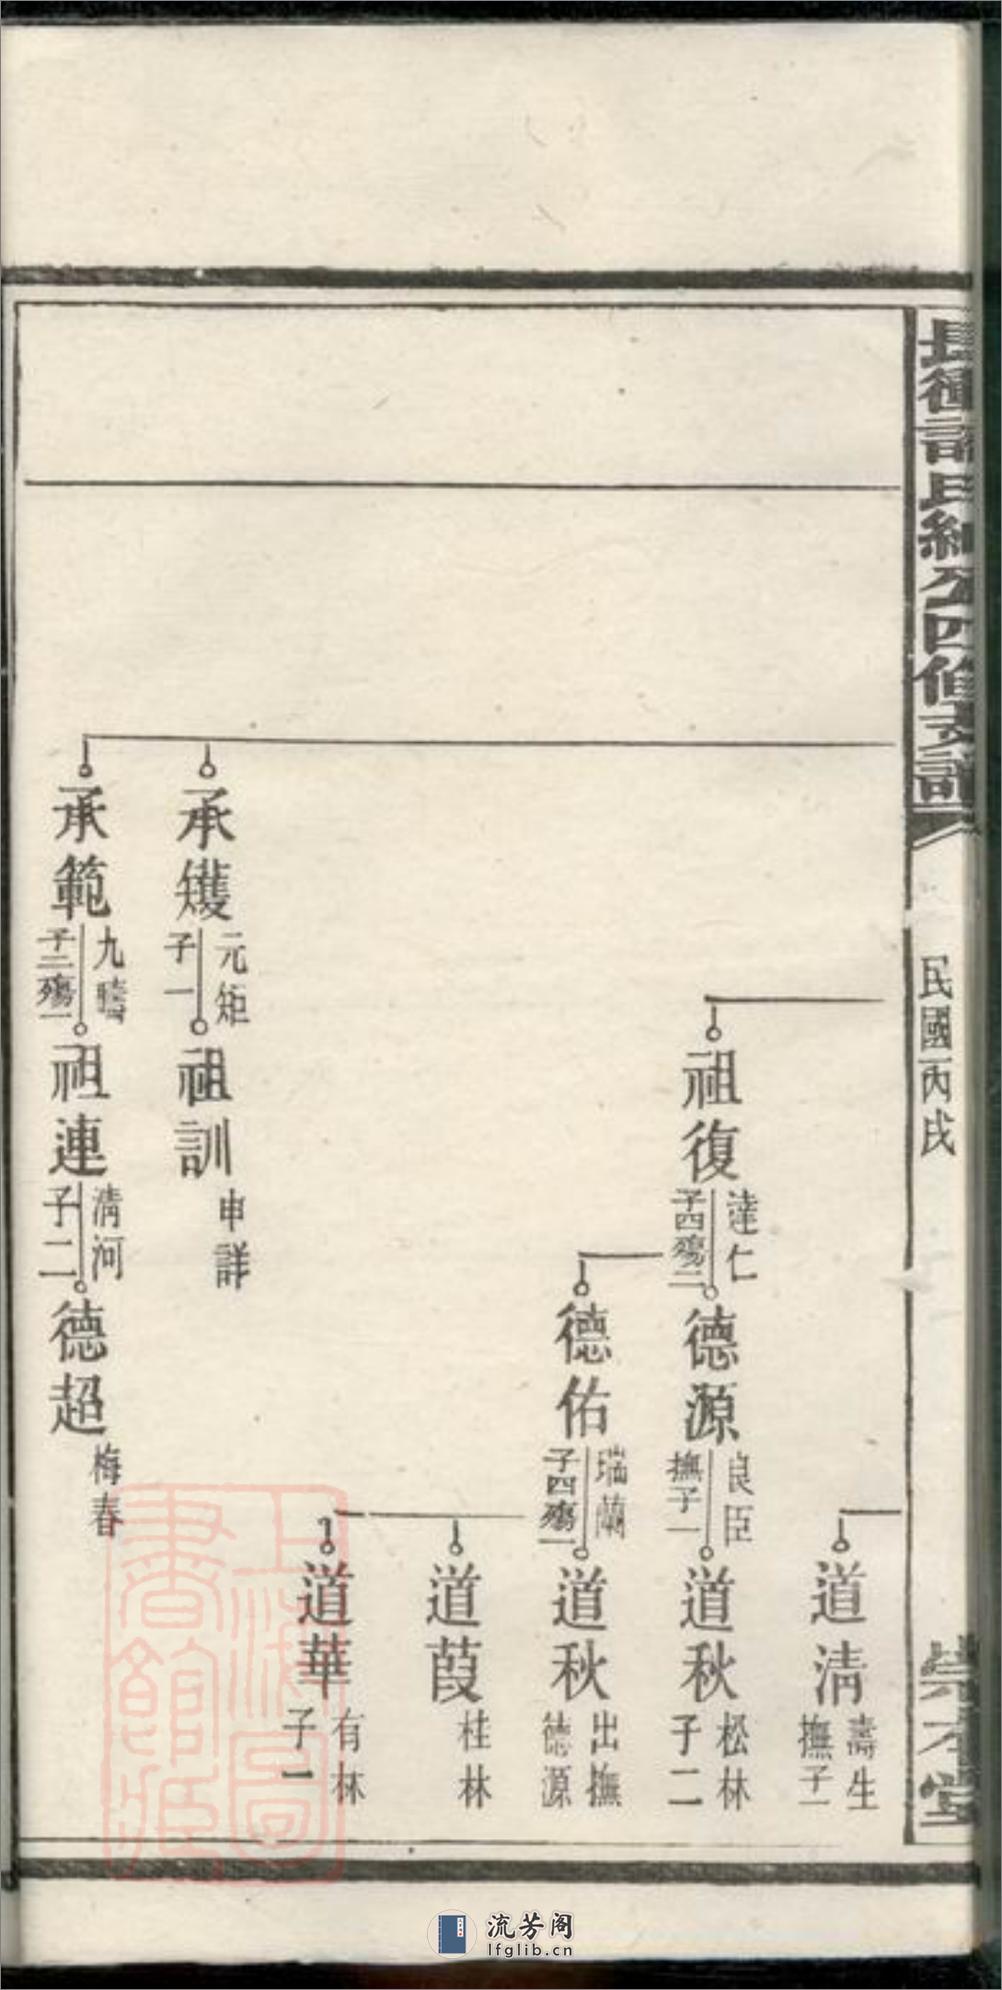 民國丙戌
道清
壽生
撫子一
祖復
達仁
子四殤二
德源
良臣
撫子一
道秋
松林
子二
德佑
瑞蘭
子四殤一
道秋
出撫
德源
道葭
桂林
道華
有林
子一
承矱
元矩
子一
祖訓
申詳
承範
九疇
子二殤一
祖連
清河
子二
德超
梅春
上海圖
書館藏
流芳阁
lfglib.cn